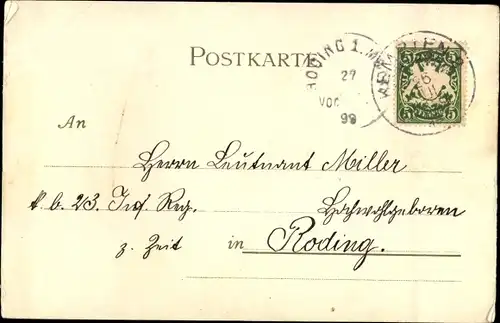 POSTKARTE
RODING 1.
27
VOR
99
5 5
An
Herrn Leutnant Miller
k. b. 23. Inf. Reg. Hochwohlgeboren
z. Zeit in Roding.